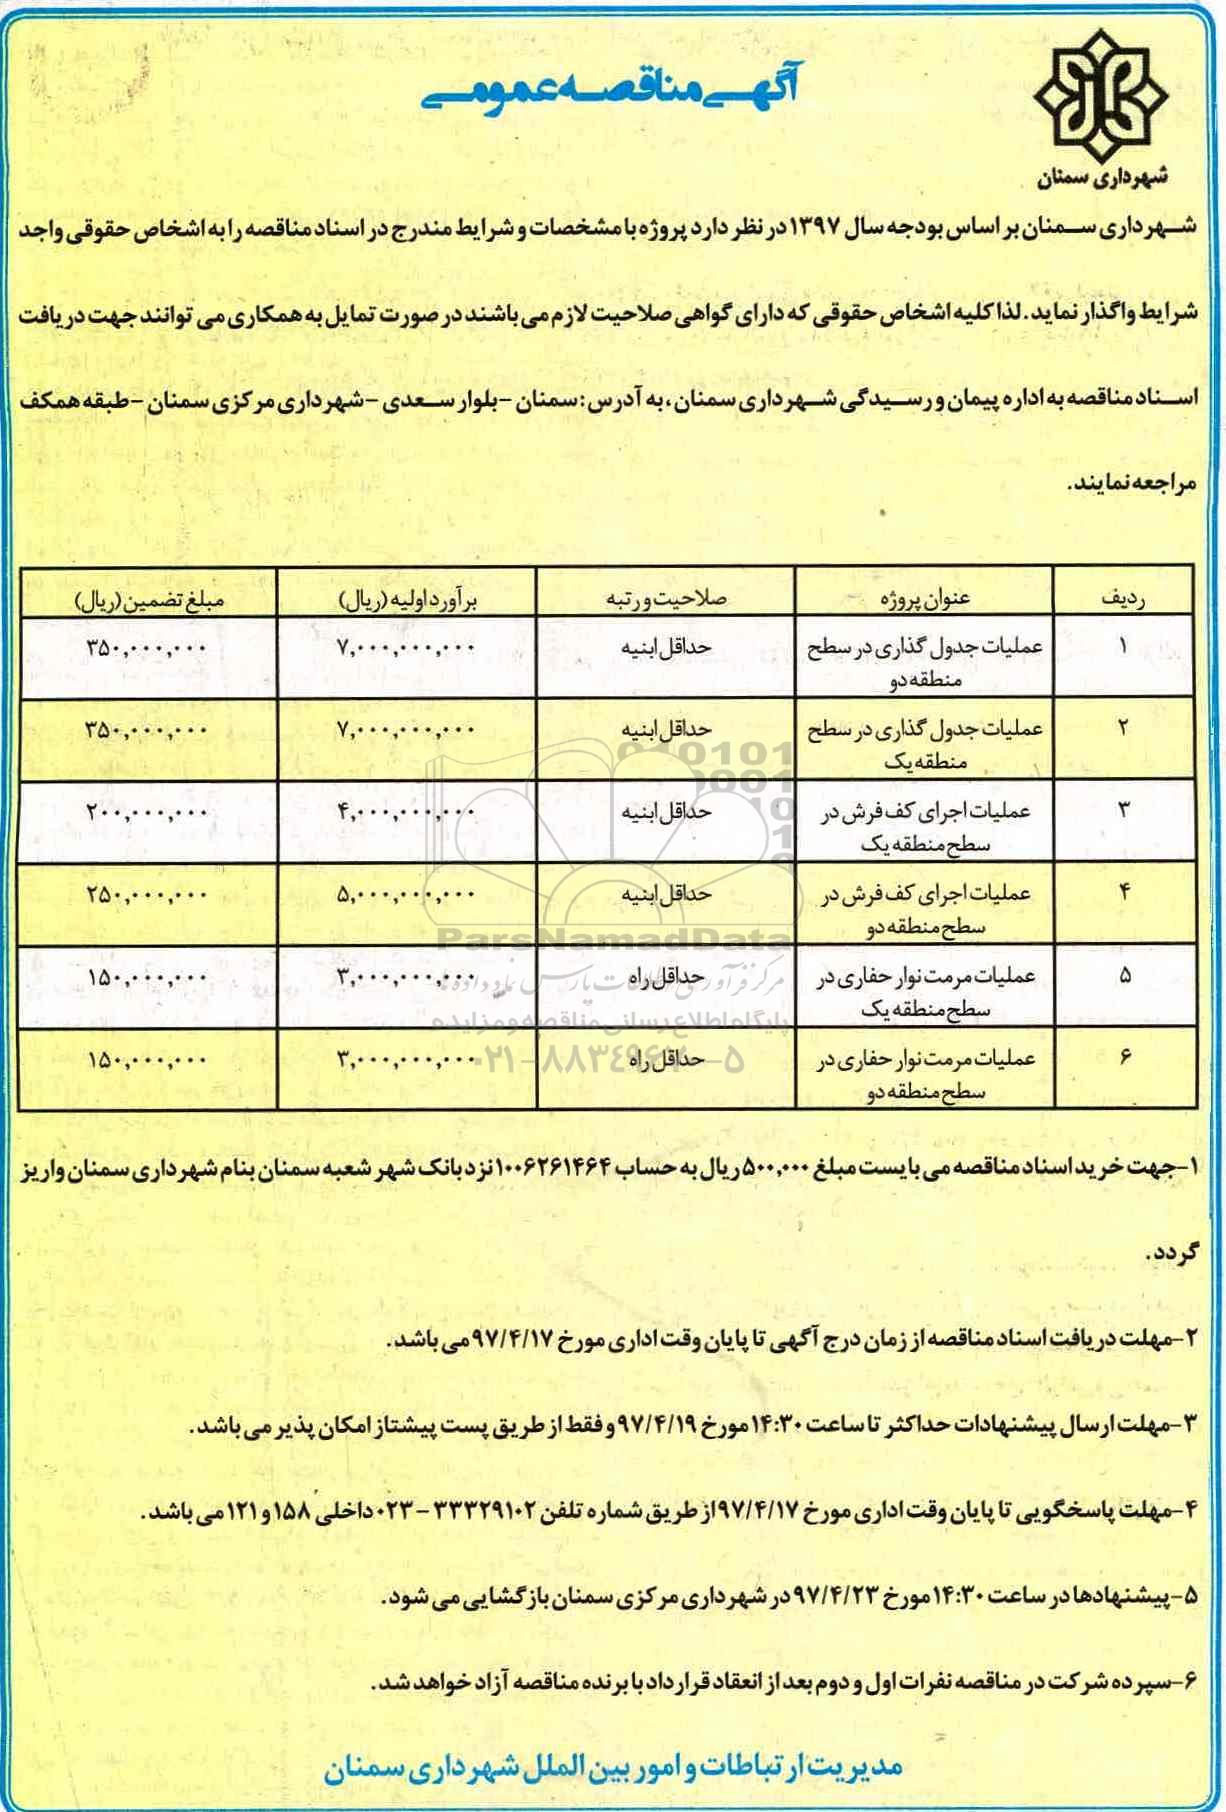 آگهی مناقصه عمومی
شهرداری سمنان
شهرداری سمنان بر اساس بودجه سال ۱۳۹۷ در نظر دارد پروژه با مشخصات و شرایط مندرج در اسناد مناقصه را به اشخاص حقوقی واجد
شرایط واگذار نماید. لذا کلیه اشخاص حقوقی که دارای گواهی صلاحیت لازم می باشند در صورت تمایل به همکاری می توانند جهت دریافت
اسناد مناقصه به اداره پیمان و رسیدگی شهرداری سمنان، به آدرس: سمنان - بلوار سعدی - شهرداری مرکزی سمنان - طبقه همکف
مراجعه نمایند.
ردیف عنوان پروژه صلاحیت و رتبه برآورد اولیه (ریال) مبلغ تضمین (ریال)
۱ عملیات جدول گذاری در سطح حداقل ابنیه ۷,۰۰۰,۰۰۰,۰۰۰ ۳۵۰,۰۰۰,۰۰۰
منطقه دو
۲ عملیات جدول گذاری در سطح حداقل ابنیه ۷,۰۰۰,۰۰۰,۰۰۰ ۳۵۰,۰۰۰,۰۰۰
منطقه یک
۳ عملیات اجرای کف فرش در حداقل ابنیه ۴,۰۰۰,۰۰۰,۰۰۰ ۲۰۰,۰۰۰,۰۰۰
سطح منطقه یک
۴ عملیات اجرای کف فرش در حداقل ابنیه ۵,۰۰۰,۰۰۰,۰۰۰ ۲۵۰,۰۰۰,۰۰۰
سطح منطقه دو
ParsNamadData
۵ عملیات مرمت نوار حفاری در حداقل راه ۳,۰۰۰,۰۰۰,۰۰۰ ۱۵۰,۰۰۰,۰۰۰
سطح منطقه یک
مرکز فرآوری اطلاعات پارس نماد داده ها
پایگاه اطلاع رسانی مناقصه و مزایده
۶ عملیات مرمت نوار حفاری در حداقل راه ۳,۰۰۰,۰۰۰,۰۰۰ ۱۵۰,۰۰۰,۰۰۰
سطح منطقه دو
۱-جهت خرید اسناد مناقصه می بایست مبلغ ۵۰۰,۰۰۰ ریال به حساب ۱۰۰۶۲۶۱۴۶۴ نزد بانک شهر شعبه سمنان بنام شهرداری سمنان واریز
گردد.
۲-مهلت دریافت اسناد مناقصه از زمان درج آگهی تا پایان وقت اداری مورخ ۹۷/۴/۱۷ می باشد.
۳-مهلت ارسال پیشنهادات حداکثر تا ساعت ۱۴:۳۰ مورخ ۹۷/۴/۱۹ و فقط از طریق پست پیشتاز امکان پذیر می باشد.
۴-مهلت پاسخگویی تا پایان وقت اداری مورخ ۹۷/۴/۱۷ از طریق شماره تلفن ۳۳۳۲۹۱۰۲ - ۰۲۳ داخلی ۱۵۸ و ۱۲۱ می باشد.
۵-پیشنهادها در ساعت ۱۴:۳۰ مورخ ۹۷/۴/۲۳ در شهرداری مرکزی سمنان بازگشایی می شود.
۶-سپرده شرکت در مناقصه نفرات اول و دوم بعد از انعقاد قرارداد با برنده مناقصه آزاد خواهد شد.
مدیریت ارتباطات و امور بین الملل شهرداری سمنان